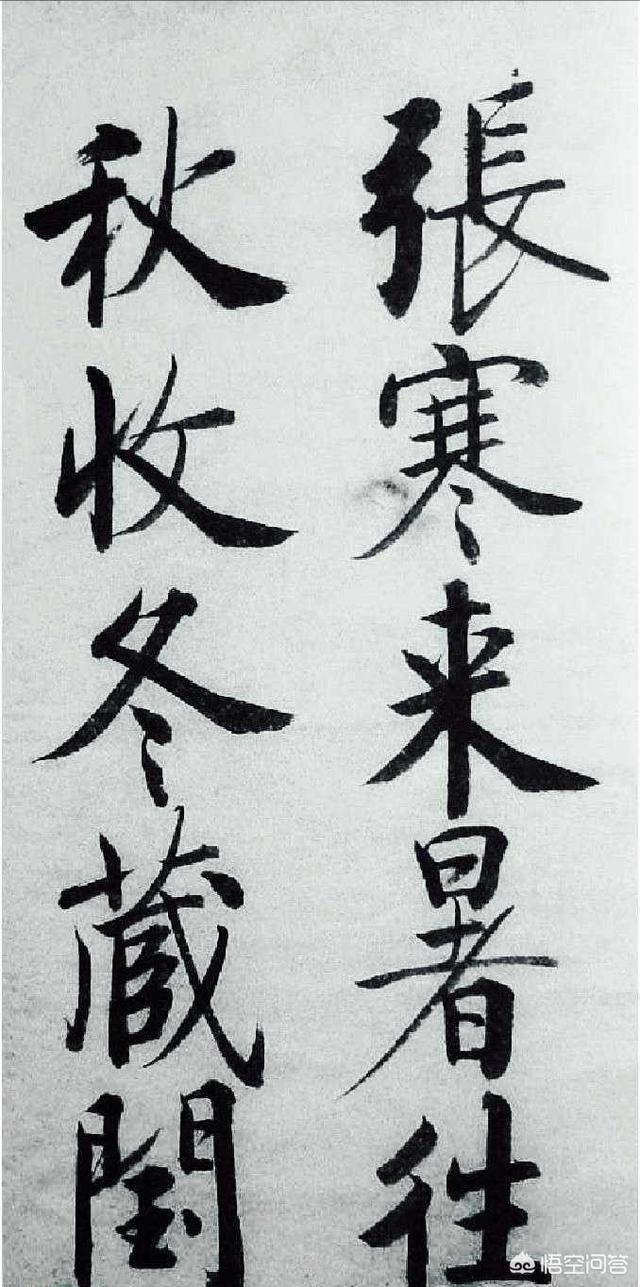 張寒来暑往
秋收冬蔵閏
悟空问答